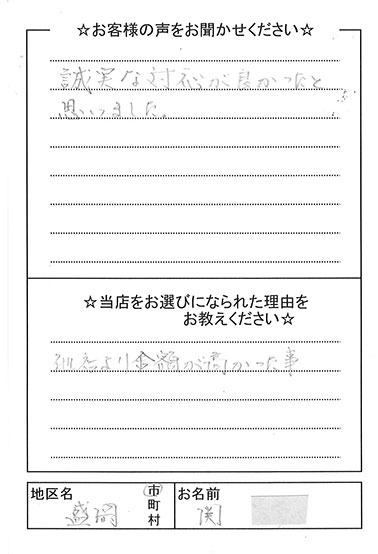 ☆お客様の声をお聞かせください☆
誠実な対応が良かったと
思いました。
☆当店をお選びになられた理由を
お教えください☆
他店より金額が高かった事
地区名
盛岡
市
町
村
お名前
関